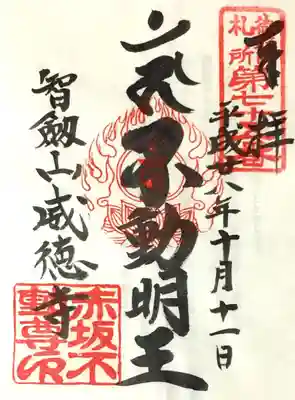 奉拝
御府内
札所第七十五番
平成廿八年十月十一日
不動明王
智剱山威徳寺
赤坂不
動尊印